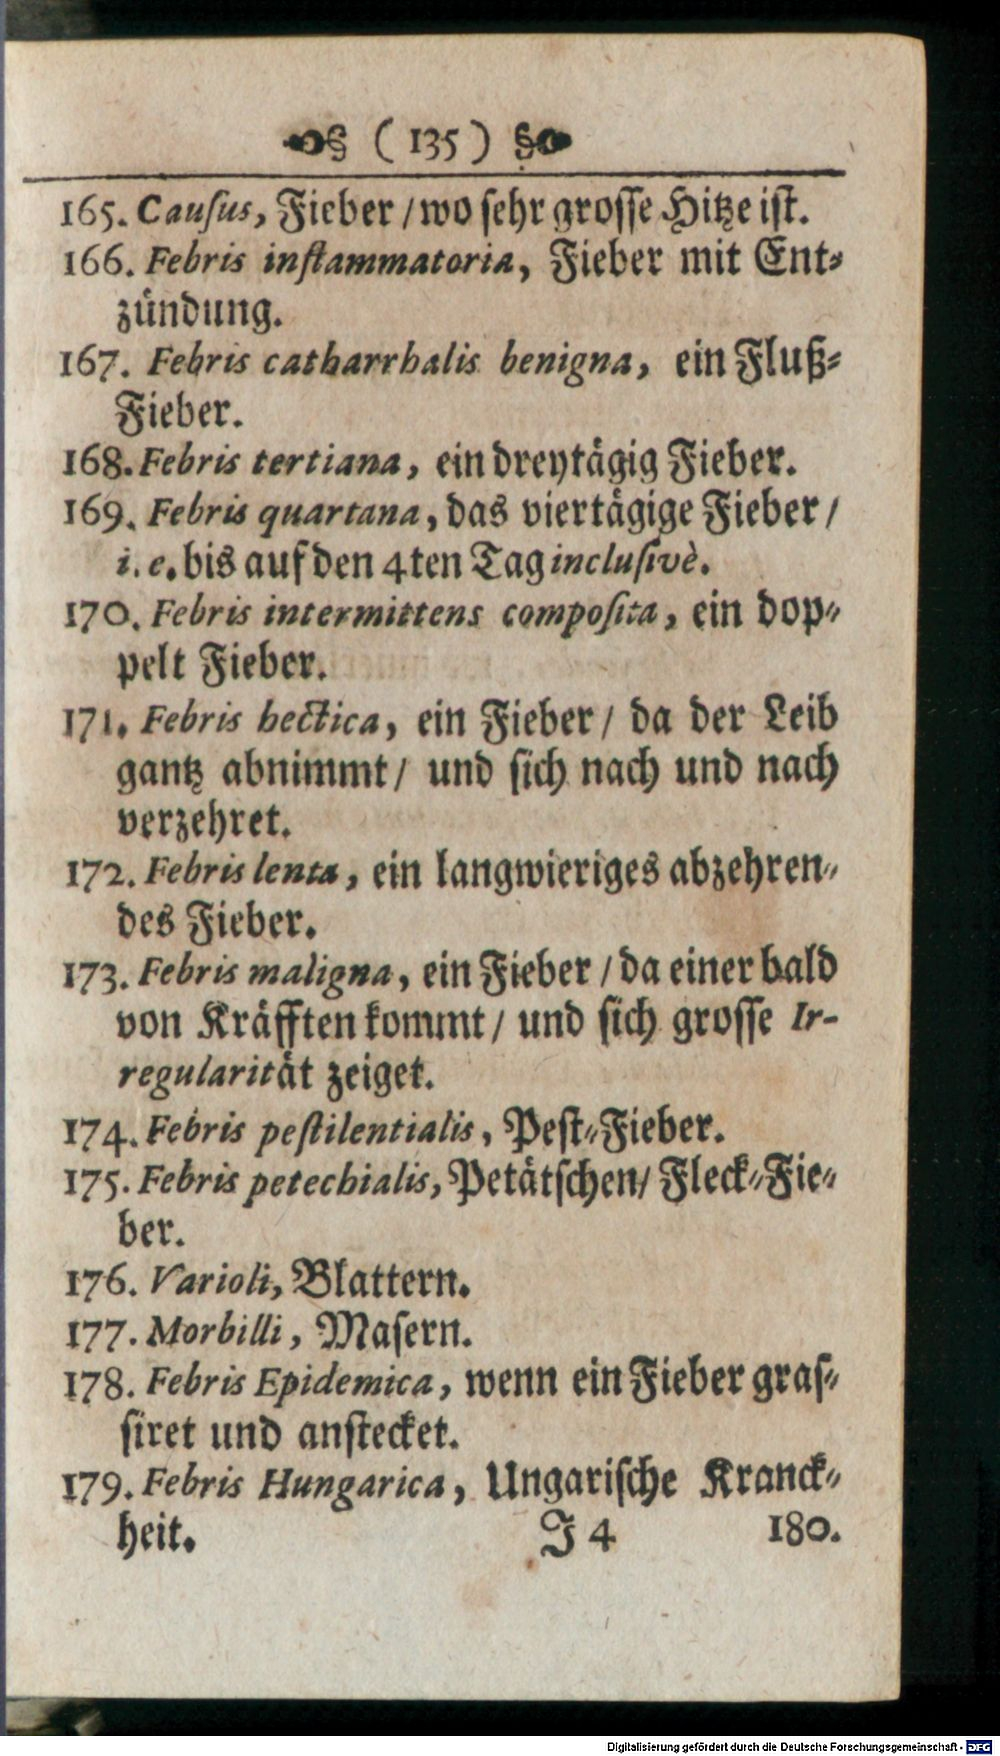 ( 135 )
165. Cauſus, Fieber / wo ſehr groſſe Hitze iſt.
166. Febris inflammatoria, Fieber mit Ent⸗
zündung.
167. Febris catharrhalis benigna, ein Fluß⸗
Fieber.
168. Febris tertiana, ein dreytägig Fieber.
169. Febris quartana, das viertägige Fieber /
i. e. bis auf den 4ten Tag incluſivè.
170. Febris intermittens compoſita, ein dop⸗
pelt Fieber.
171. Febris hectica, ein Fieber / da der Leib
gantz abnimmt / und ſich nach und nach
verzehret.
172. Febris lenta, ein langwieriges abzehren⸗
des Fieber.
173. Febris maligna, ein Fieber / da einer bald
von Kräfften kommt / und ſich groſſe Ir-
regularität zeiget.
174. Febris peſtilentialis, Peſt⸗Fieber.
175. Febris petechialis, Petätſchen / Fleck⸗Fie⸗
ber.
176. Varioli, Blattern.
177. Morbilli, Maſern.
178. Febris Epidemica, wenn ein Fieber graſ⸗
ſiret und anſtecket.
179. Febris Hungarica, Ungariſche Kranck⸗
heit. J 4 180.
Digitalisierung gefördert durch die Deutsche Forschungsgemeinschaft - DFG